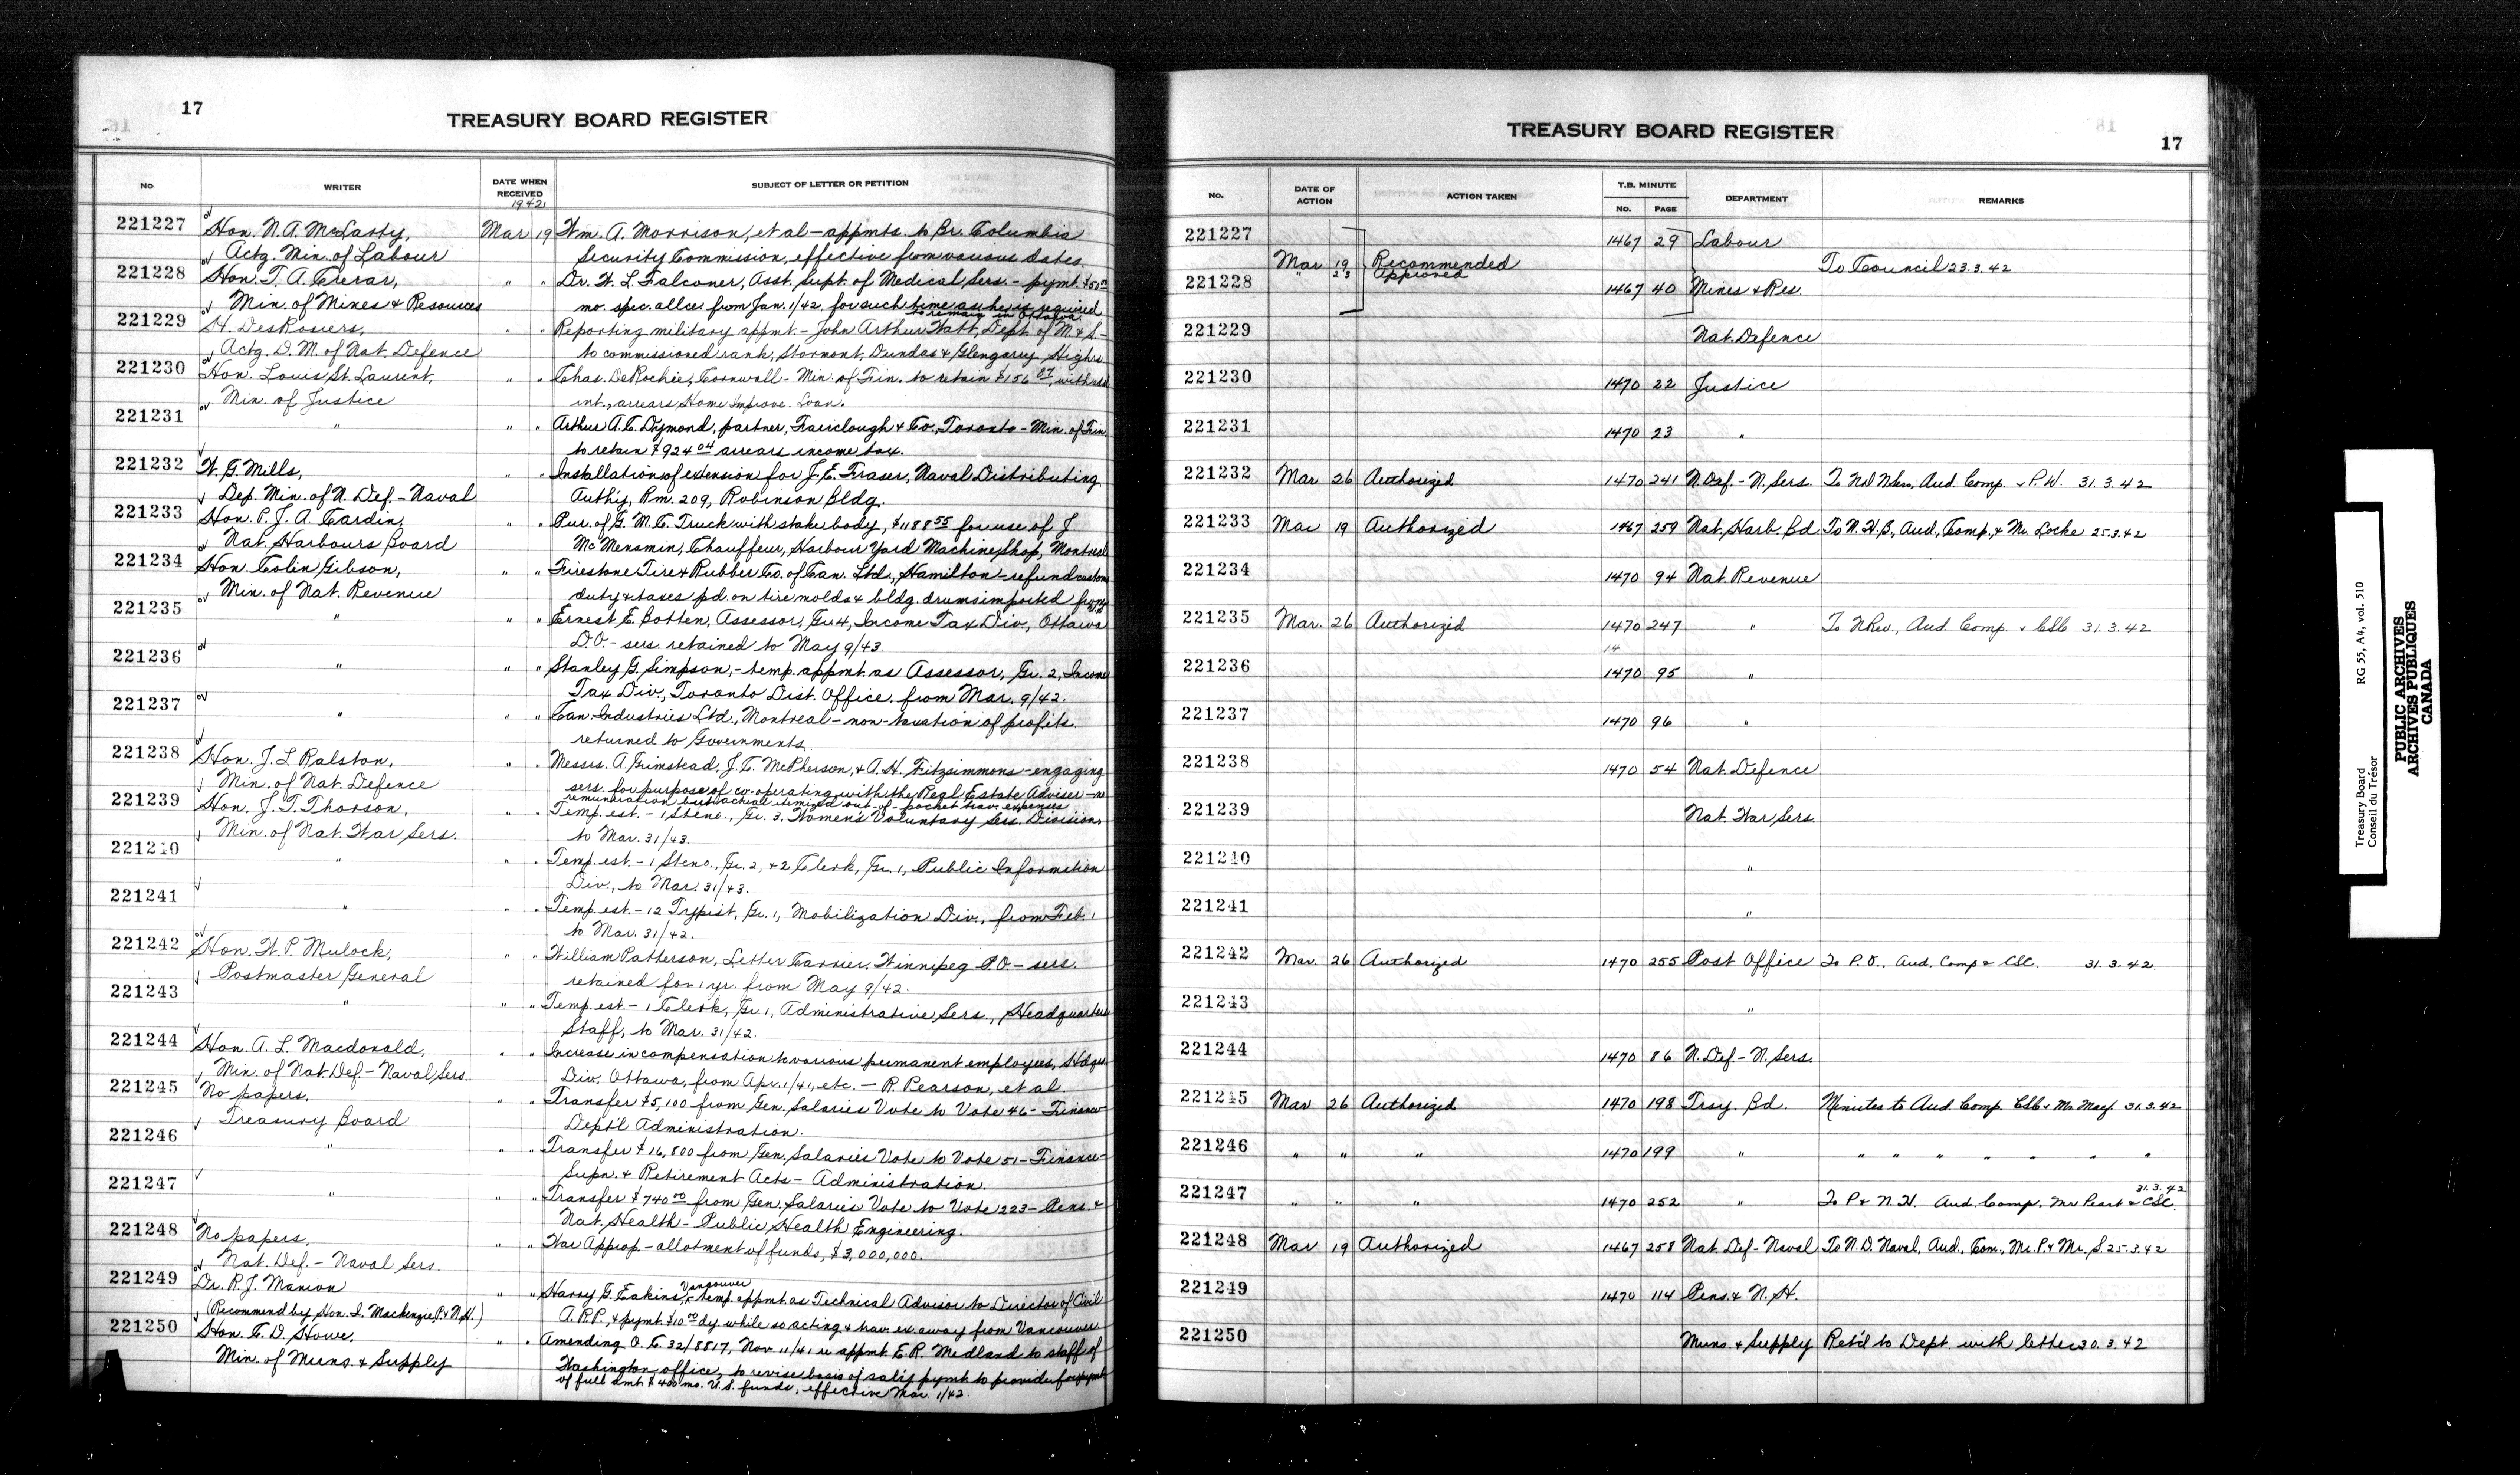 17
TREASURY BOARD REGISTER
No.
WRITER
DATE WHEN RECEIVED
1942
SUBJECT OF LETTER OR PETITION
221227 Hon. N. A. McLarty, Mar 19 Wm. A. Morrison, et al - appmts. to Br. Columbia
Actg. Min. of Labour Security Commission, effective from various dates
221228 Hon. T. A. Crerar, " " Dr. H. L. Falconer, Asst. Supt. of Medical Sers. - pymt. $50.00
Min. of Mines & Resources mo. spec. allce. from Jan. 1/42, for such time as he is required
to remain in Ottawa
221229 H. DesRosiers, " " Reporting military appmt. - John Arthur Watt, Dept. of M. & S. -
Actg. D. M. of Nat. Defence to commissioned rank, Stormont, Dundas & Glengarry Highrs
221230 Hon. Louis St. Laurent, " " Chas. DeRochie, Cornwall - Min. of Fin. to retain $156.87, without
Min. of Justice int., arrears Home Improve. Loan.
221231 " " " Arthur A. C. Dymond, partner, Fairclough & Co., Toronto - Min. of Fin
to retain $924.04 arrears income tax.
221232 W. G. Mills, " " Installation of extension for J. E. Fraser, Naval Distributing
Dep. Min. of N. Def. - Naval Auth'y, Rm. 209, Robinson Bldg.
221233 Hon. P. J. A. Cardin, " " Pur. of G. M. C. Truck with stake body, $1188.55 for use of J.
Nat. Harbours Board McMenamin, Chauffeur, Harbour Yard Machine Shop, Montreal
221234 Hon. Colin Gibson, " " Firestone Tire & Rubber Co. of Can. Ltd., Hamilton - refund customs
Min. of Nat. Revenue duty & taxes pd on tire molds & bldg. drums imported from
221235 " " " Ernest E. Botten, Assessor, Gr. 4, Income Tax Div., Ottawa
D.O. - sers. retained to May 9/43.
221236 " " " Stanley G. Simpson, - temp. appmt. as Assessor, Gr. 2, Income
Tax Div., Toronto Dist. Office, from Mar. 9/42.
221237 " " " Can. Industries Ltd., Montreal - non-taxation of profits
returned to Governments.
221238 Hon. J. L. Ralston, " " Messrs. A. Grimstead, J. C. McPherson, & A. H. Fitzsimmons - engaging
Min. of Nat. Defence sers. for purpose of co-operating with the Real Estate Adviser - no
remuneration but actual itemized out-of-pocket trav. expenses
221239 Hon. J. T. Thorson, " " Temp. est. - 1 Steno., Gr. 3, Women's Voluntary Sers. Division,
Min. of Nat. War Sers. to Mar. 31/43.
221240 " " " Temp. est. - 1 Steno., Gr. 2, & 2 Clerk, Gr. 1, Public Information
Div., to Mar. 31/43.
221241 " " " Temp. est. - 12 Typist, Gr. 1, Mobilization Div., from Feb. 1
to Mar. 31/42.
221242 Hon. W. P. Mulock, " " William Patterson, Letter Carrier, Winnipeg P.O. - sers.
Postmaster General retained for 1 yr. from May 9/42.
221243 " " " Temp. est. - 1 Clerk, Gr. 1, Administrative Sers., Headquarters
Staff, to Mar. 31/42.
221244 Hon. A. L. Macdonald, " " Increase in compensation to various permanent employees, Hdqrs.
Min. of Nat. Def. - Naval Sers. Div. Ottawa, from Apr. 1/41, etc. - R. Pearson, et al.
221245 No papers, " " Transfer $5,100 from Gen. Salaries Vote to Vote 46 - Finance
Treasury Board Dept'l Administration.
221246 " " " Transfer $16,800 from Gen. Salaries Vote to Vote 51 - Finance -
Supn. & Retirement Acts - Administration.
221247 " " " Transfer $740.00 from Gen. Salaries Vote to Vote 223 - Pens. &
Nat. Health - Public Health Engineering.
221248 No papers, " " War Approp - allotment of funds, $3,000,000.
Nat. Def. - Naval Sers.
221249 Dr. R. J. Manion " " Harry G. Eakins, Vancouver - temp. appmt. as Technical Advisor to Director of Civil
(Recommend by Hon. I. Mackenzie, P. & N.H.) A.R.P., & pymt. $10.00 dy. while so acting & trav. ex. away from Vancouver
221250 Hon. C. D. Howe, " " Amending O. C. 32/8817, Nov. 11/41 re appmt. E. R. Medland to staff of
Min. of Muns. & Supply Washington office, to revise basis of sal'y pymt to provide for pymt
of full amt. $400 mo. U.S. funds, effective Mar. 1/42.
TREASURY BOARD REGISTER
17
No.
DATE OF ACTION
ACTION TAKEN
T.B. MINUTE
No. PAGE
DEPARTMENT
REMARKS
221227 1467 29 Labour
Mar 19 Recommended To Council 23.3.42
" 23 Approved
221228 1467 40 Mines & Res.
221229 Nat. Defence
221230 1470 22 Justice
221231 1470 23 "
221232 Mar 26 Authorized 1470 241 N. Def. - N. Sers. To Nd NSer, Aud. Comp. & P.W. 31.3.42
221233 Mar 19 Authorized 1467 259 Nat. Harb. Bd. To N.H.B., Aud., Comp., & Mr. Locke 25.3.42
221234 1470 94 Nat. Revenue
221235 Mar. 26 Authorized 1470 247 " To NRev., Aud. Comp. & CSC 31.3.42
14
221236 1470 95 "
221237 1470 96 "
221238 1470 54 Nat. Defence
221239 Nat. War Sers.
221240 "
221241 "
221242 Mar. 26 Authorized 1470 255 Post Office To P.O., Aud. Comp & CSC. 31.3.42
221243 "
221244 1470 86 N. Def. - N. Sers.
221245 Mar 26 Authorized 1470 198 Trsy. Bd. Minutes to Aud. Comp. CSC & Mr. May. 31.3.42
221246 " " " 1470 199 " " " " " " " "
31.3.42
221247 " " " 1470 252 " To P & N.H. Aud. Comp. Mr Peart & CSC.
221248 Mar 19 Authorized 1467 258 Nat. Def - Naval To N.D. Naval, Aud., Com., Mr. P. & Mr. S. 25.3.42
221249 1470 114 Pens. & N.H.
221250 Muns. & Supply Ret'd to Dept. with letter 30.3.42
Treasury Board RG 55, A4, vol. 510
Conseil du Trésor
PUBLIC ARCHIVES
ARCHIVES PUBLIQUES
CANADA